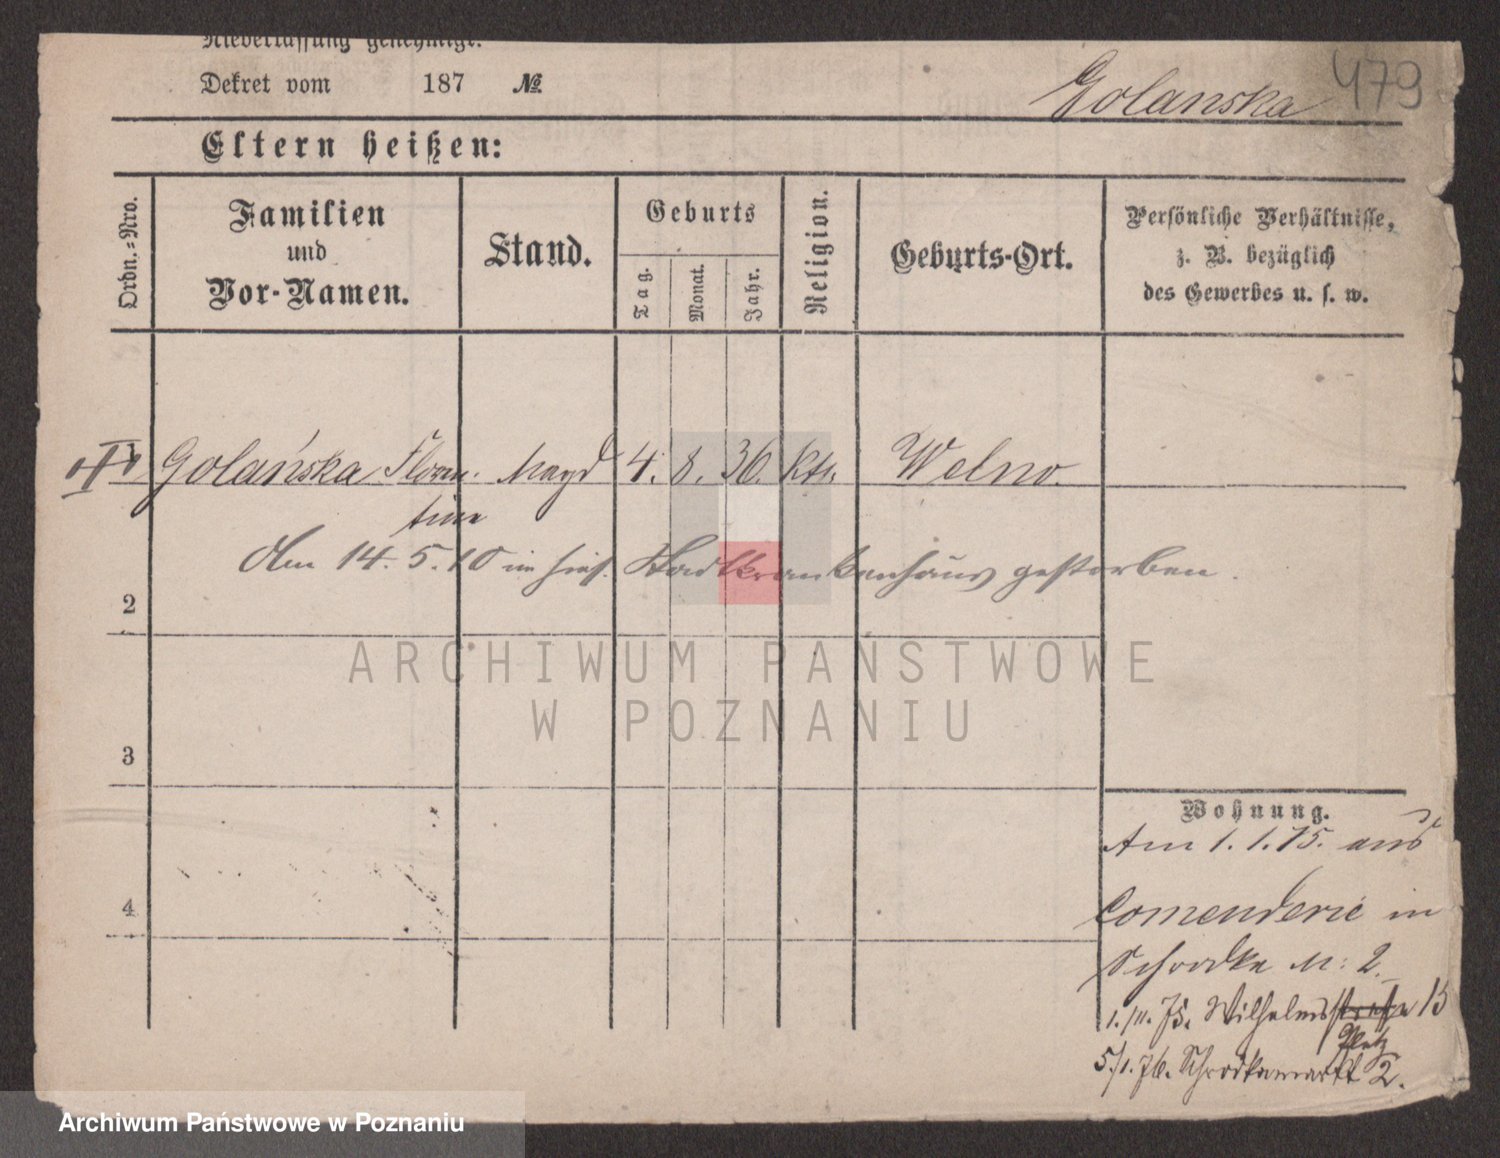 Niederlassung genehmigt.
Dekret vom 187 №
Golanska 479
Eltern heißen:
Ordn.=Nro.
Familien
und
Vor-Namen.
Stand.
Geburts
Tag.
Monat.
Jahr.
Religion.
Geburts-Ort.
Persönliche Verhältnisse,
z. B. bezüglich
des Gewerbes u. s. w.
1 Golańska Floren- Magd 4. 8. 36. kth. Welno.
tine
Am 14. 5. 10 im hies. Stadtkrankenhaus gestorben.
2
ARCHIWUM PAŃSTWOWE
W POZNANIU
3
4
Wohnung.
Am 1. 1. 75. aus
Comenderie in
Schrodka N: 2.
1./11. 75. Wilhelmsstraße 15
Platz
5/1. 76. Schrodkamarkt 2.
Archiwum Państwowe w Poznaniu